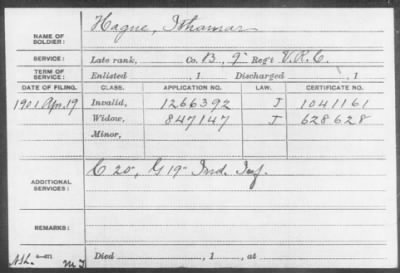 NAME OF SOLDIER: Hague, Ithamar
SERVICE: Late rank, Co. B, 9" Reg't V.R.C.
TERM OF SERVICE: Enlisted , 1 Discharged , 1
DATE OF FILING. CLASS. APPLICATION NO. LAW. CERTIFICATE NO.
1901 Apr. 19 Invalid, 1266392 J 1041161
Widow, 847147 J 628628
Minor,
ADDITIONAL SERVICES: C 20", G 19" Ind. Inf.
REMARKS:
Died , 1 , at